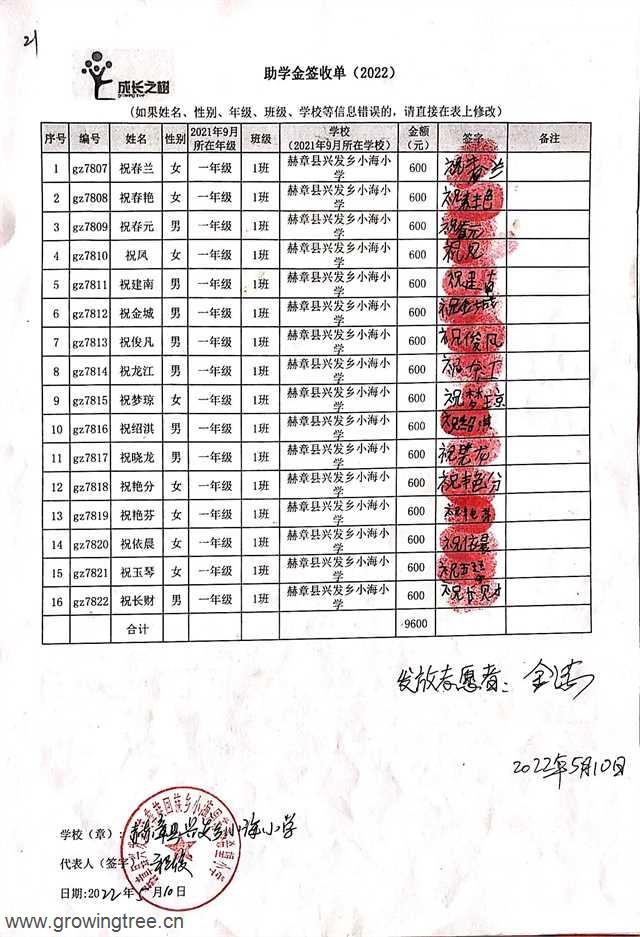 21
成长之树
growing tree
助学金签收单（2022）
(如果姓名、性别、年级、班级、学校等信息错误的, 请直接在表上修改)
序号 编号 姓名 性别 2021年9月所在年级 班级 学校（2021年9月所在学校） 金额（元） 签字 备注
1 gz7807 祝春兰 女 一年级 1班 赫章县兴发乡小海小学 600 祝春兰
2 gz7808 祝春艳 女 一年级 1班 赫章县兴发乡小海小学 600 祝春艳
3 gz7809 祝春元 男 一年级 1班 赫章县兴发乡小海小学 600 祝春元
4 gz7810 祝凤 女 一年级 1班 赫章县兴发乡小海小学 600 祝凤
5 gz7811 祝建南 男 一年级 1班 赫章县兴发乡小海小学 600 祝建南
6 gz7812 祝金城 男 一年级 1班 赫章县兴发乡小海小学 600 祝金城
7 gz7813 祝俊凡 男 一年级 1班 赫章县兴发乡小海小学 600 祝俊凡
8 gz7814 祝龙江 男 一年级 1班 赫章县兴发乡小海小学 600 祝龙江
9 gz7815 祝梦琼 女 一年级 1班 赫章县兴发乡小海小学 600 祝梦琼
10 gz7816 祝绍淇 男 一年级 1班 赫章县兴发乡小海小学 600 祝绍淇
11 gz7817 祝晓龙 男 一年级 1班 赫章县兴发乡小海小学 600
12 gz7818 祝艳分 女 一年级 1班 赫章县兴发乡小海小学 600 祝艳分
13 gz7819 祝艳芬 女 一年级 1班 赫章县兴发乡小海小学 600 祝艳芬
14 gz7820 祝依晨 女 一年级 1班 赫章县兴发乡小海小学 600 祝依晨
15 gz7821 祝玉琴 女 一年级 1班 赫章县兴发乡小海小学 600 祝玉琴
16 gz7822 祝长财 男 一年级 1班 赫章县兴发乡小海小学 600 祝长财
合计 9600
发放志愿者：
2022年5月10日
学校（章）：赫章县兴发乡小海小学
代表人（签字）
日期:2022年5月10日
www.growingtree.cn